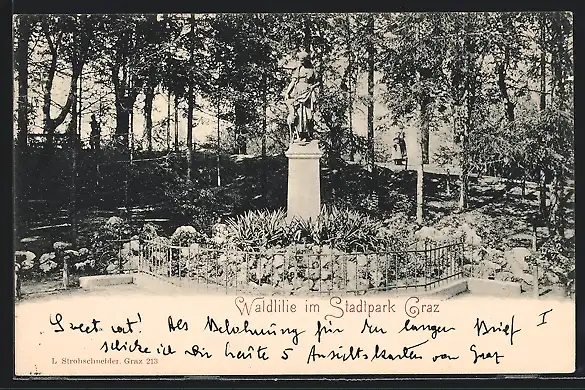 Waldlilie im Stadtpark Graz
Sweet cat! Als Belohnung für den langen Brief I
schicke ich Dir heute 5 Ansichtskarten von Graz
L Strohschneider, Graz 213